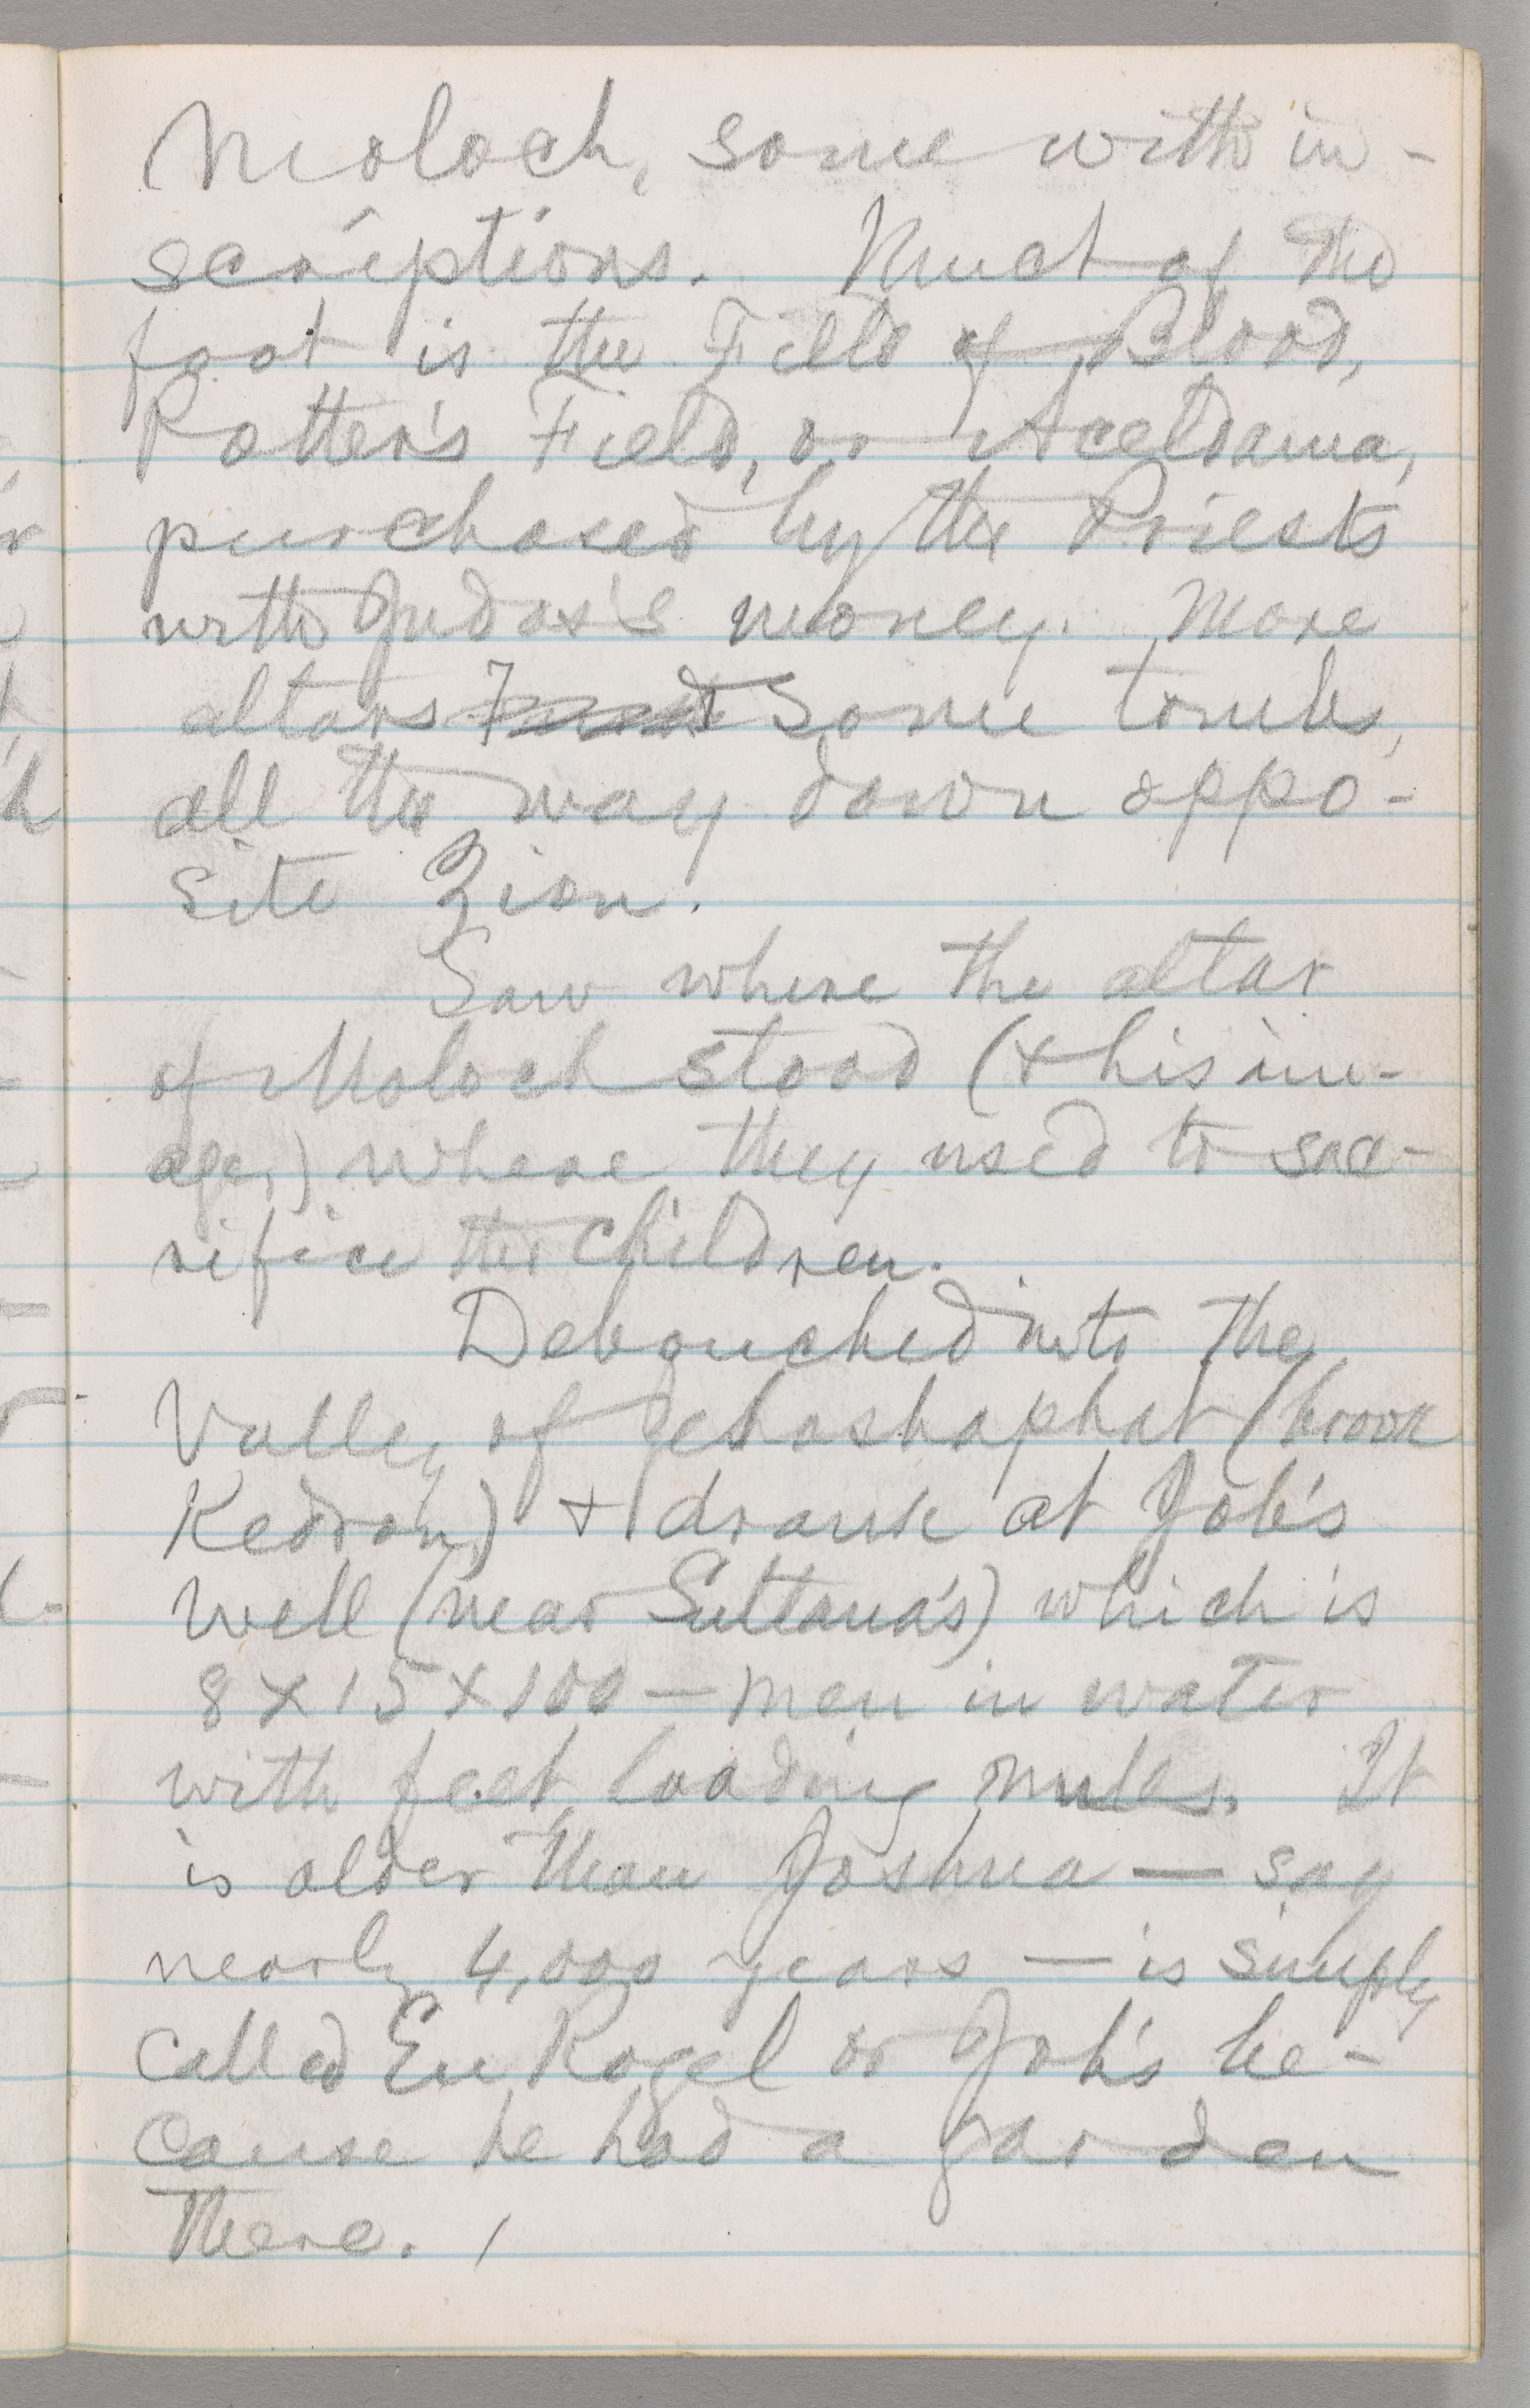 Moloch, some with in-
scriptions. Much of the
foot is the Field of Blood,
Potter's Field, or Aceldama,
purchased by the Priests
with Judas's money. More
altars & some tombs,
all the way down oppo-
site Zion.
Saw where the altar
of Moloch stood (& his im-
age,) where they used to sac-
rifice the children.
Debouched into the
Valley of Jehoshaphat (brook
Kedron) & drank at Job's
well (near Sultana's) which is
8 x 15 x 100 — men in water
with feet, loading mules. It
is older than Joshua — say
nearly 4,000 years — is simply
called En Rogel or Job's be-
cause he had a garden
there.